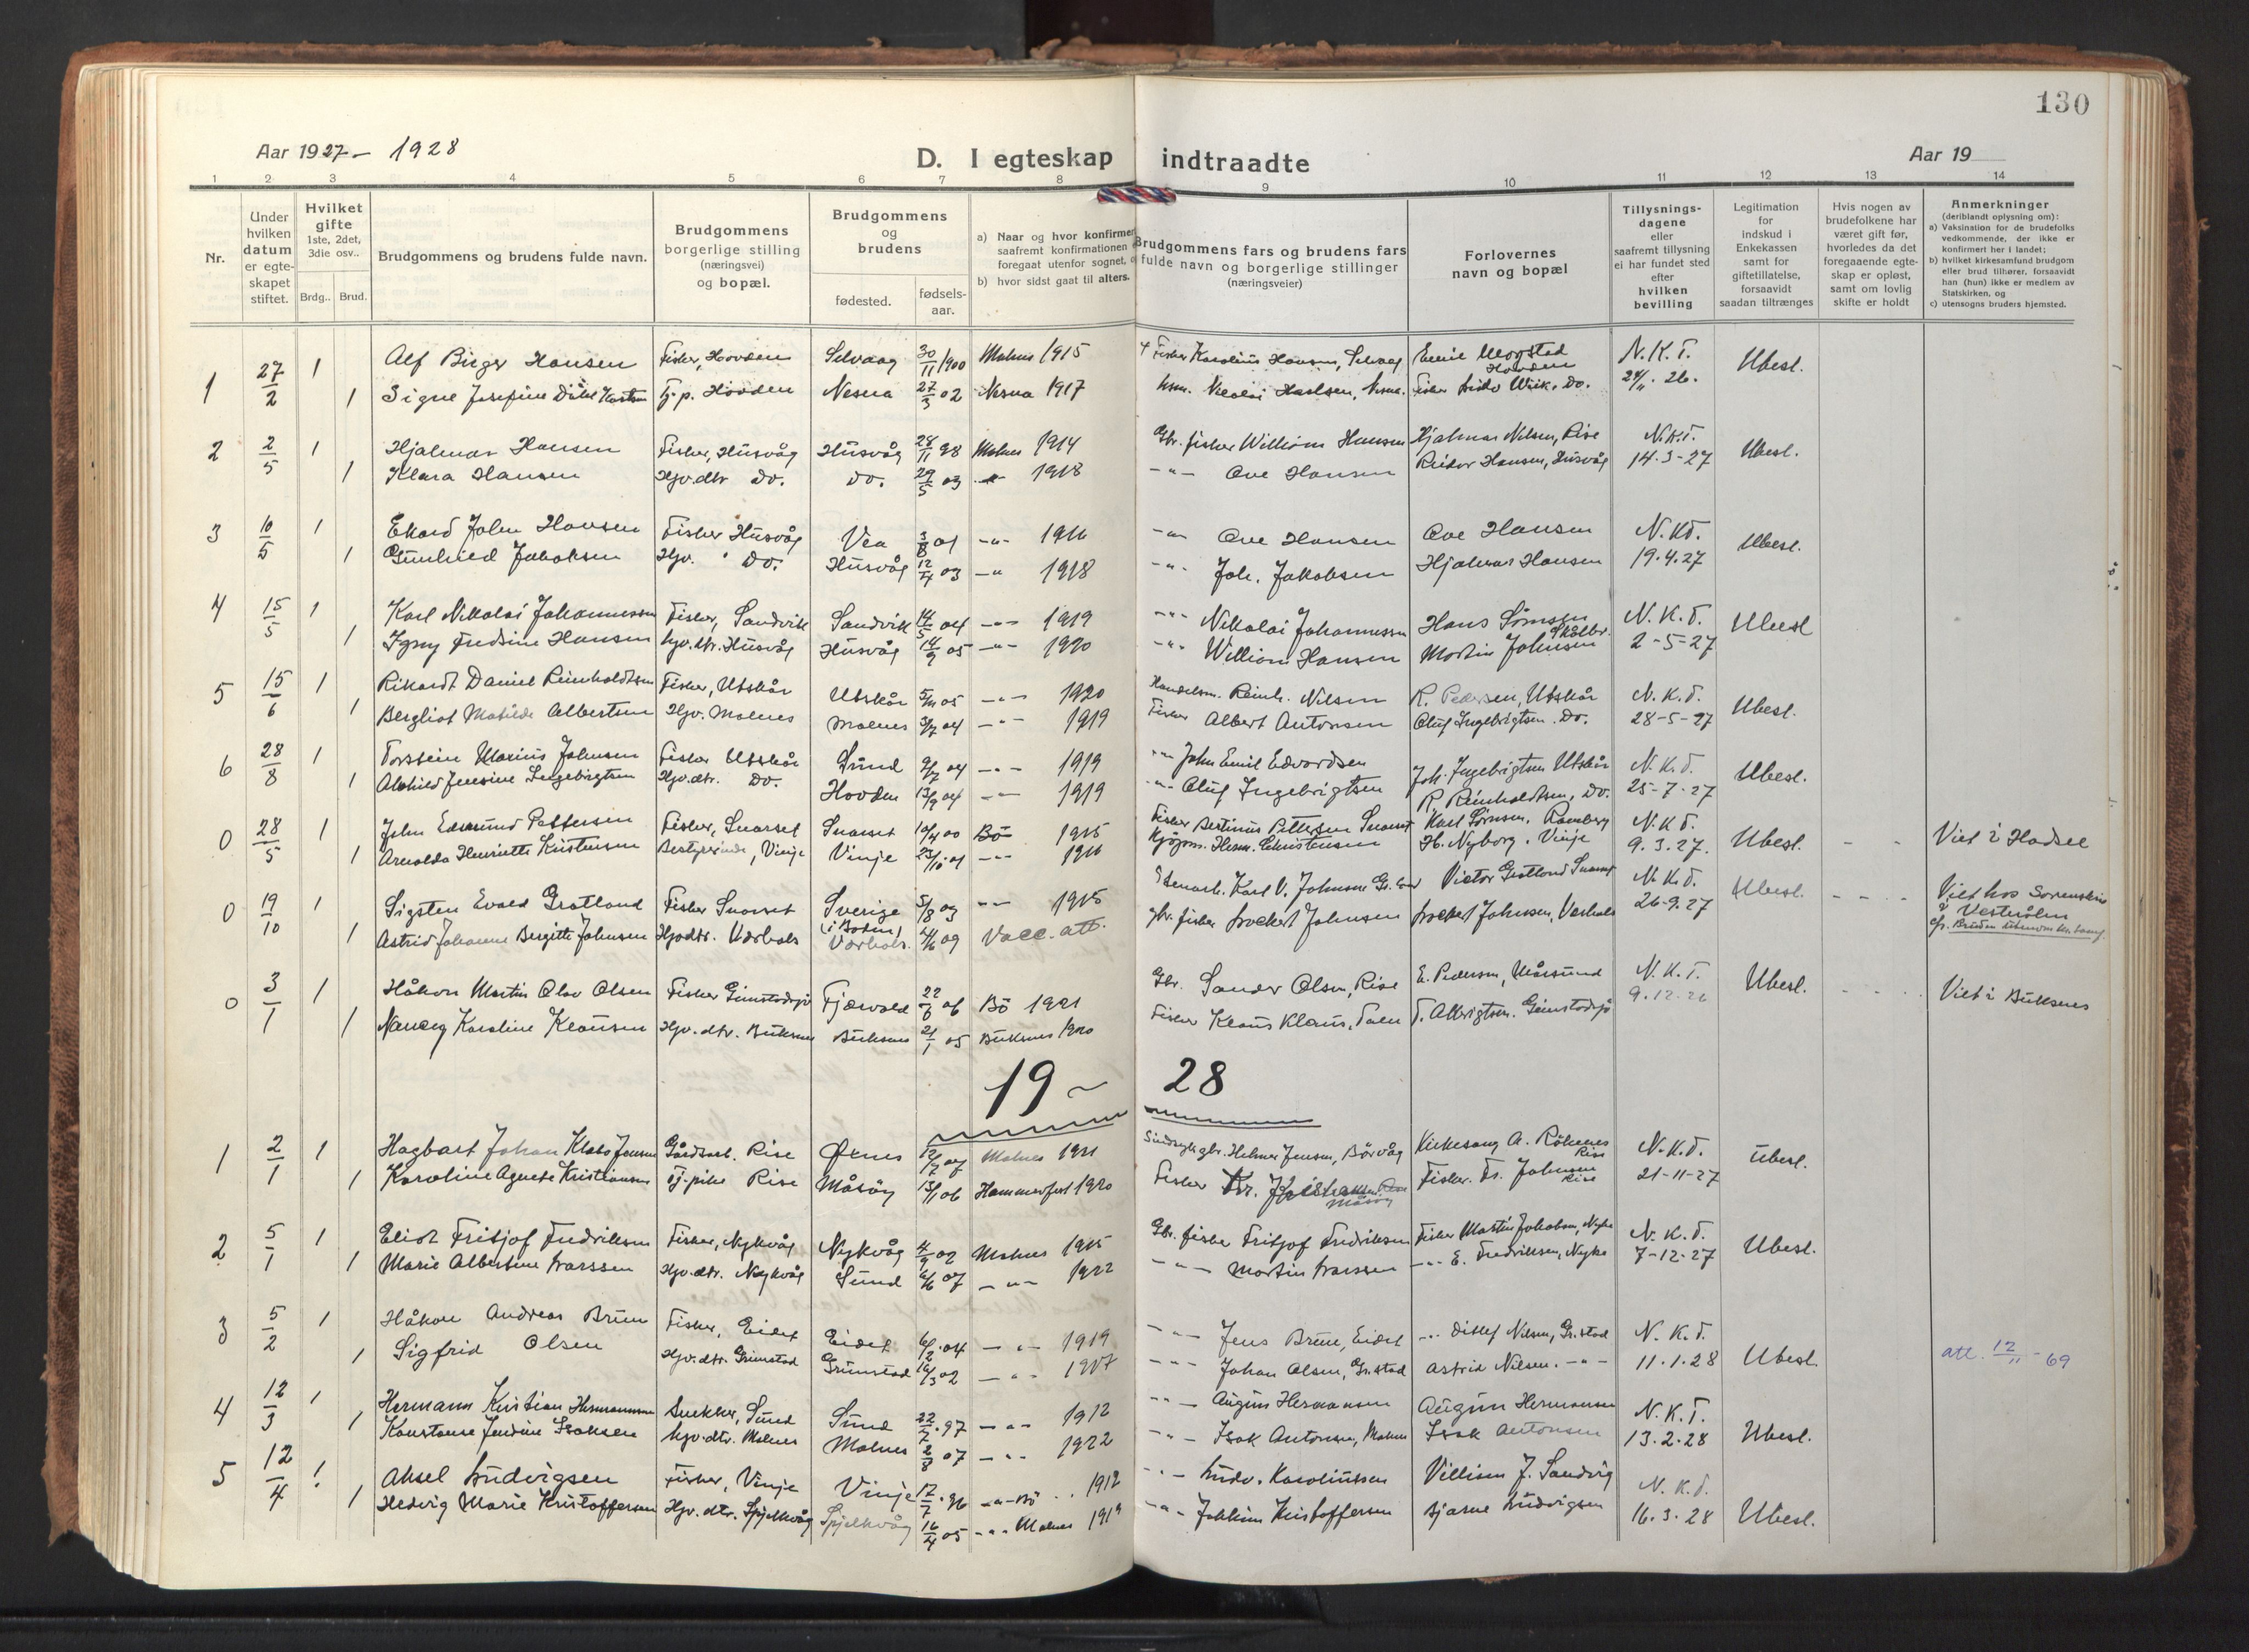 130
Aar 1927 - 1928
D. I egteskap indtraadte
Aar 19
1 2 3 4 5 6 7 8 9 10 11 12 13 14
Nr.
Under hvilken datum er egteskapet stiftet.
Hvilket gifte 1ste, 2det, 3die osv..
Brdg.. Brud.
Brudgommens og brudens fulde navn.
Brudgommens borgerlige stilling (næringsvei) og bopæl.
Brudgommens og brudens
fødested. fødsels-aar.
a) Naar og hvor konfirmer saafremt konfirmationen foregaat utenfor sognet,
b) hvor sidst gaat til alters.
Brudgommens fars og brudens fars fulde navn og borgerlige stillinger (næringsveier)
Forlovernes navn og bopæl
Tillysnings-dagene eller saafremt tillysning ei har fundet sted efter hvilken bevilling
Legitimation for indskud i Enkekassen samt for giftetillatelse, forsaavidt saadan tiltrænges
Hvis nogen av brudefolkene har været gift før, hvorledes da det foregaaende egteskap er opløst, samt om lovlig skifte er holdt
Anmerkninger (deriblandt oplysning om):
a) Vaksination for de brudefolks vedkommende, der ikke er konfirmert her i landet;
b) hvilket kirkesamfund brudgom eller brud tilhører, forsaavidt han (hun) ikke er medlem av Statskirken, og
c) utensogns bruders hjemsted.
1 27/2 1 Alf Birger Hansen Fisker, Hovden Selvaag 30/11 1900 Malnes 1915 Fisker Karolius Hansen, Selvaag Emil Mogstad Hovden N.K.T. Ubesl.
1 Signe Josefine Tj.p. Hovden Nesna 27/3 02 Nesna 1917 Nikolai Karlsen, Nesna. Fisker Wiik, Do. 24/11. 26.
2 2/5 1 Hjalmar Hansen Fisker, Husvåg Husvåg 28/11 98 Malnes 1914 Gbr. fisker William Hansen Hjalmar Nilsen, Rise N.K.T. Ubesl.
1 Klara Hansen Hjv.dtr Do. Do. 29/5 03 1918 -"- Ove Hansen Reidar Hansen, Husvåg 14-3-27
3 10/5 1 Edvard Johan Hansen Fisker Husvåg Vea 3/8 01 -"- 1916 -"- Ove Hansen Ove Hansen N.K.T. Ubesl.
1 Gunhild Jakobsen Hjv. " Do. Husvåg 12/4 03 -"- 1918 -"- Joh. Jakobsen Hjalmar Hansen 19.4.27
4 15/5 1 Karl Nikolai Johannessen Fisker, Sandvik Sandvik 14/5 04 -"- 1919 -"- Nikolai Johannessen Hans Simsen N.K.T. Ubesl
1 Hansen Hjv.dtr. Husvåg Husvåg 14/9 05 -"- 1920 -"- William Hansen Martin Johnsen 2-5-27
5 15/6 1 Rikardt Daniel Reinholdtsen Fisker, Utskår Utskår 5/11 05 -"- 1920 Handelsm. Reinh. Nilsen R. Pedersen, Utskår N.K.T. Ubesl.
1 Bergliot Matilde Albertsen Hjv. Malnes Malnes 3/7 04 -"- 1919 Fisker Albert Antonsen Oluf Ingebrigtsen. Do. 28-5-27
6 28/8 1 Torstein Marius Johnsen Fisker Utskår Sund 9/7 04 -"- 1919 -"- John Emil Edvardsen Joh. Ingebrigtsen Utskår N.K.T. Ubesl.
1 Alshild Jensine Ingebrigtsen Hjv.dtr. Do. Hovden 13/9 04 -"- 1919 -"- Oluf Ingebrigtsen R. Reinholdtsen, Do. 25-7-27
0 28/5 1 John Edmund Pettersen Fisker, Snarset Snarset 10/4 00 Bö 1915 Fisker Bertinus Pettersen Snarset Karl Sörnsen. Ramberg N.K.T. Ubesl. - - Viet i Hadsel
1 Arnolda Henriette Kristensen Bestyrerinde, Vinje Vinje 23/10 01 -"- 1916 Kjöpm. Herm. Christensen H. Nyborg. Vinje 9.3.27.
0 19/10 1 Sigsten Evald Grotland Fisker Snarset Sverige (i Boden) 5/8 03 -"- 1915 Stenarb. Karl V. Johnson Victor Grotland Snarset N.K.T. Ubesl. - - - Viet hos Sorenskriv i Vesterålen
1 Astrid Johanne Bergitte Johnsen Hjvdtr. Værhals Værhals. 09 Vacc. att. gbr. fisker Lockert Johnsen Lockert Johnsen, Værhals 26-9.27
0 3/1 1 Håkon Martin Olav Olsen Fisker Grimstadsjö Fjærvold 22/6 06 Bö 1921 Gbr. Sander Olsen, Rise E. Pedersen, N.K.T. Ubesl. - - . Viet i Buksnes
1 Nancy Karoline Klausen Hjv.dtr. Buksnes Buksnes 21/1 05 Buksnes 1920 Fisker Klaus Klaus, T. Albrigtsen. Grimstadsjö 9.12.26
19 - 28
1 2/1 1 Hagbart Johan Klabo Jensen Gårdsarb. Rise Öknes 12/7 07 Malnes 1921 Sindsygegbr. Helmer Jensen, Börvåg Kirkesang A. Rökenes Rise N.K.T. Ubesl.
1 Karoline Agnete Kristiansen Tj.pike Rise Måsöy 13/1 06 Hammerfest 1920 Fisker Kr. Måsöy Fisker. Fr. Johnsen Rise 21-11-27
2 5/1 1 Eliot Fritjof Fredriksen Fisker, Nykvåg Nykvåg 4/9 02 Malnes 1915 Gbr. fisker Fritjof Fredriksen Fisker Martin Jakobsen, Nyke N.K.T. Ubesl.
1 Marie Albertine Larssen Hjv.dtr. Nykvåg Sund 6/6 07 -"- 1922 -"- Martin Larssen -"- E. Fredriksen, Nyke 7-12-27
3 5/2 1 Håkon Andreas Brun Fisker, Eidet Eidet 6/2.04 -"- 1919 -"- Jens Brun, Eidet -"- Ditlef Nilsen, Gr.stad N.K.T. Ubesl. att. 12/11 - 69
1 Sigfrid Olsen Hjv.dtr. Grimstad Grimstad 16/3 02 -"- 1917 -"- Johan Olsen, Gr.stad Astrid Nilsen. -"- 11.1.28
4 12/3 1 Hermann Kristian Hermannsen Snekker, Sund Sund 22/7.97 -"- 1912 -"- Augun Hermansen Augun Hermansen N.K.T. Ubesl.
1 Konstanse Jensine Isaksen Hjv.dtr. Malnes Malnes 2/8 07 -"- 1922 -"- Isak Antonsen, Malnes Isak Antonsen 13.2.28
5 12/4 1 Aksel Ludvigsen Fisker, Vinje Vinje 17/7.96 -"- Bö 1912 -"- Ludv. Karoliussen Villiam J. Sandvig N.K.T. Ubesl.
1 Hedvig Marie Kristoffersen Hjv.dtr. Spjelkvåg Spjelkvåg 16/4 05 -"- Malnes 1919 -"- Joakim Kristoffersen Bjarne Ludvigsen 16.3.28